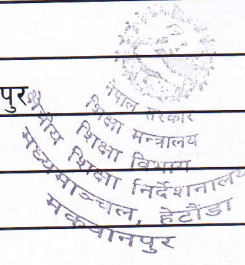 पुर
नेपाल सरकार
शिक्षा मन्त्रालय
शिक्षा विभाग
क्षेत्रीय शिक्षा निर्देशनालय
मध्यमाञ्चल, हेटौंडा
मकवानपुर